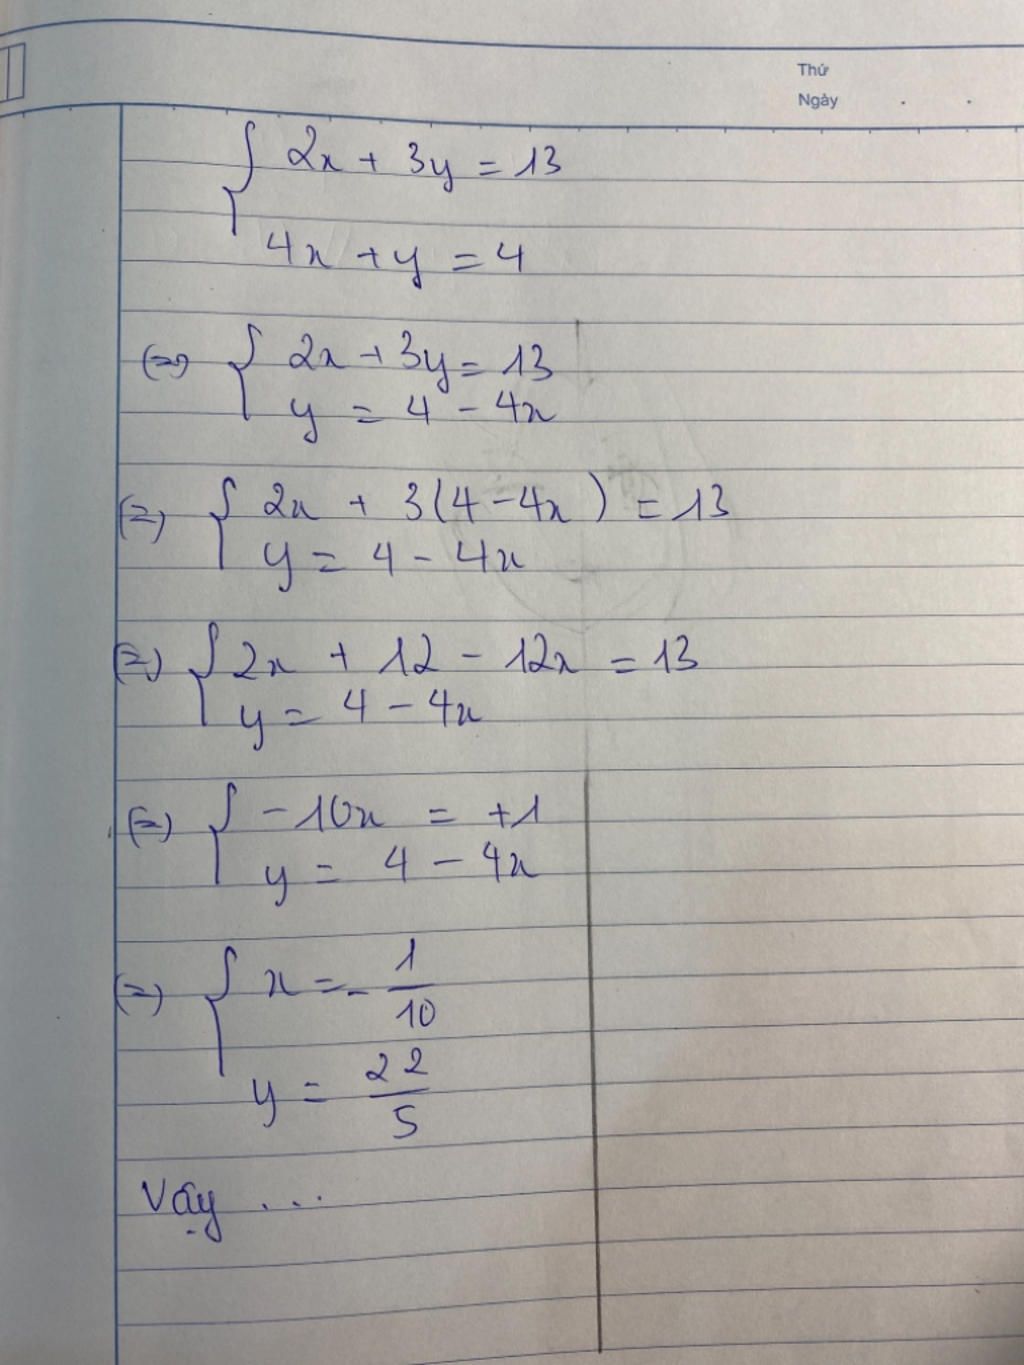 Thứ
Ngày . .
{ 2x + 3y = 13
4x + y = 4
(=) { 2x + 3y = 13
y = 4 - 4x
(=) { 2x + 3(4 - 4x) = 13
y = 4 - 4x
(=) { 2x + 12 - 12x = 13
y = 4 - 4x
(=) { -10x = +1
y = 4 - 4x
(=) { x = - 1/10
y = 22/5
Vậy ...